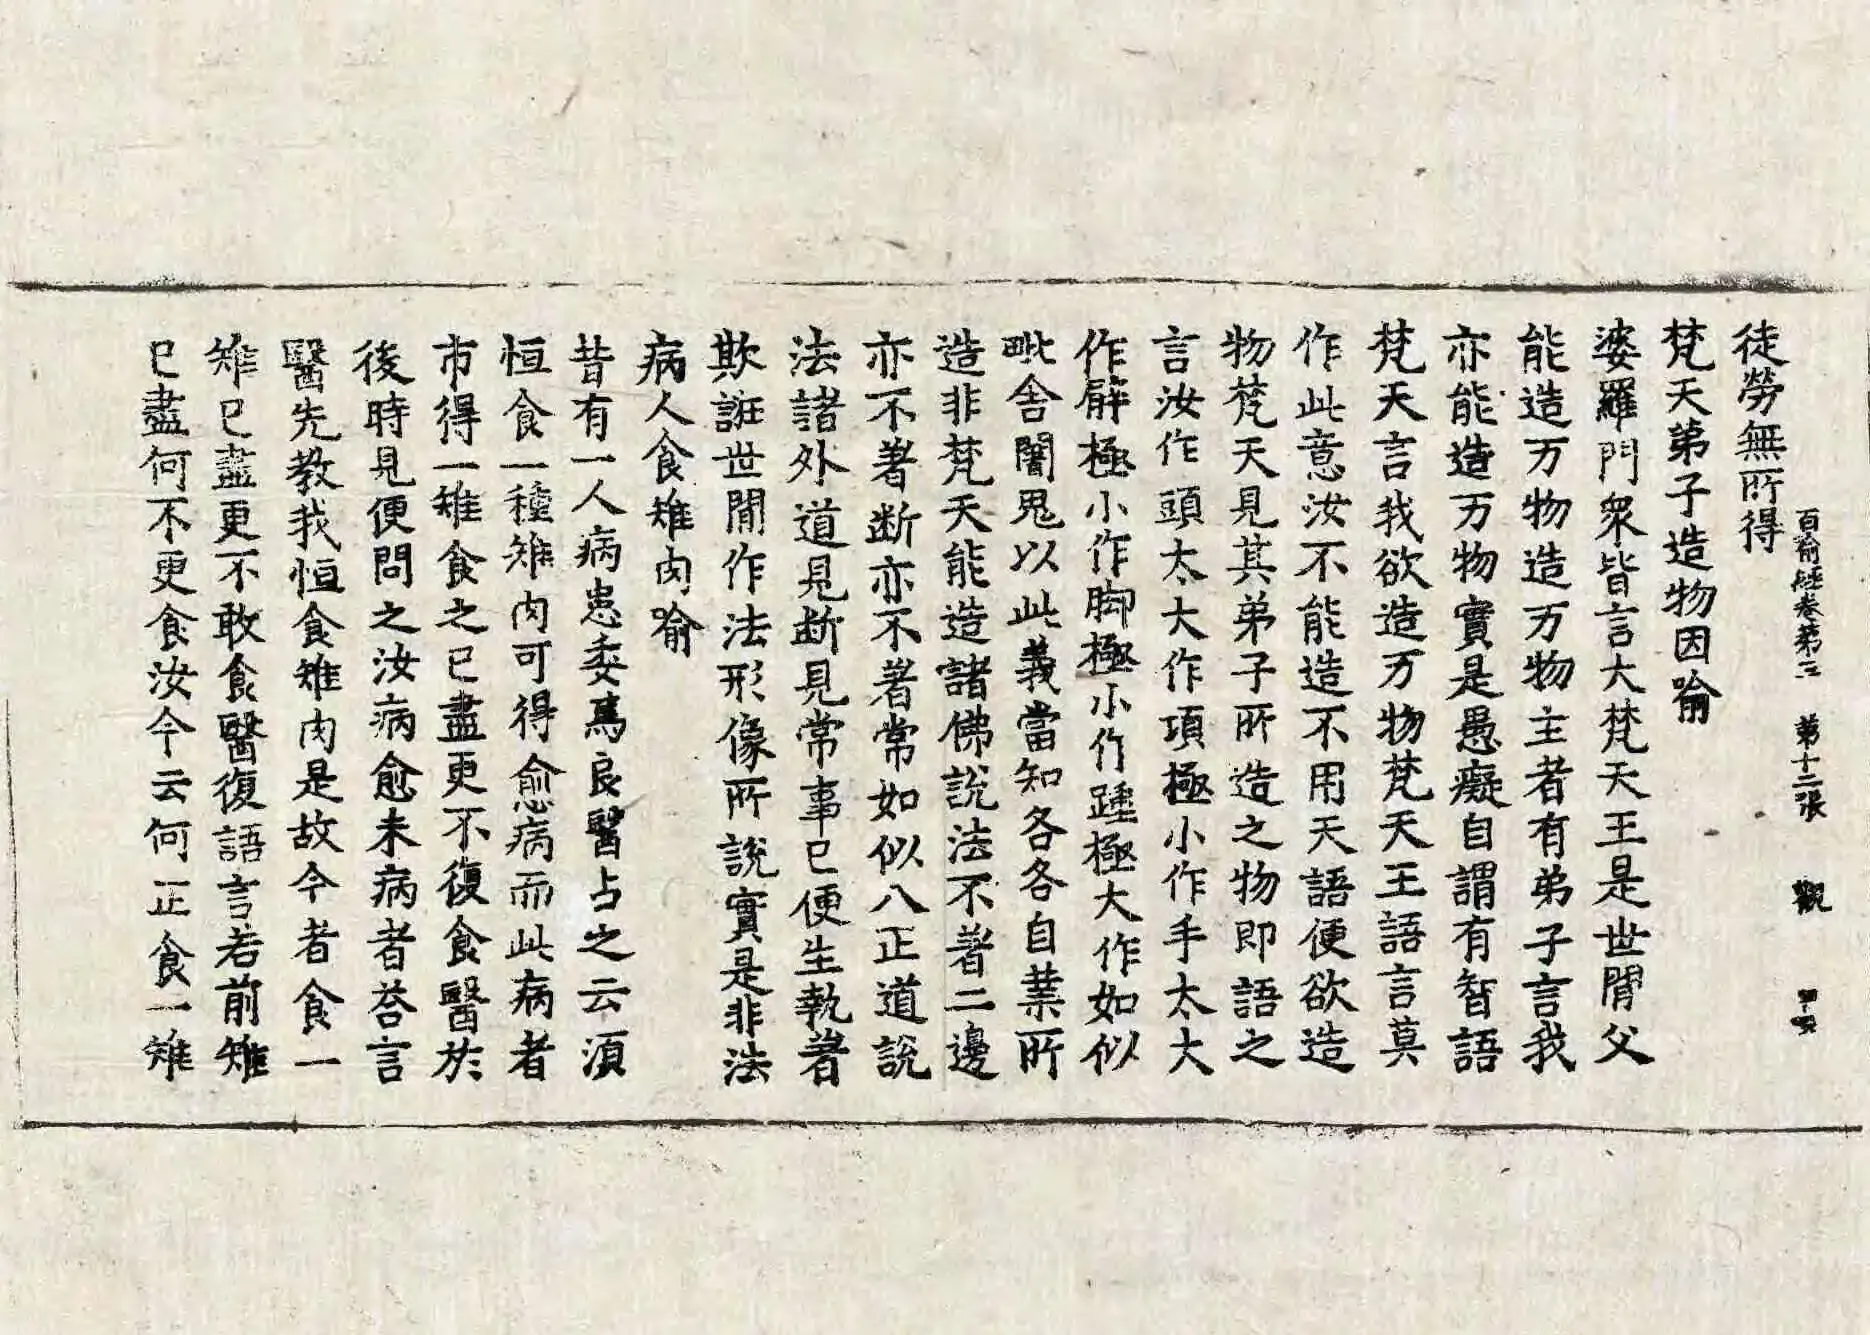 百喻經卷第三　第十二張　觀
徒勞無所得
梵天弟子造物因喻
婆羅門衆皆言大梵天王是世閒父
能造万物造万物主者有弟子言我
亦能造万物實是愚癡自謂有智語
梵天言我欲造万物梵天王語言莫
作此意汝不能造不用天語便欲造
物梵天見其弟子所造之物即語之
言汝作頭太大作項極小作手太大
作臂極小作脚極小作踵極大作如似
毗舍闍鬼以此義當知各各自業所
造非梵天能造諸佛說法不著二邊
亦不著断亦不著常如似八正道說
法諸外道見断見常事已便生執著
欺誑世閒作法形像所說實是非法
病人食雉肉喻
昔有一人病患委篤良醫占之云湏
恒食一種雉肉可得愈病而此病者
市得一雉食之已盡更不復食醫於
後時見便問之汝病愈未病者荅言
醫先教我恒食雉肉是故今者食一
雉已盡更不敢食醫復語言若前雉
已盡何不更食汝今云何正食一雉